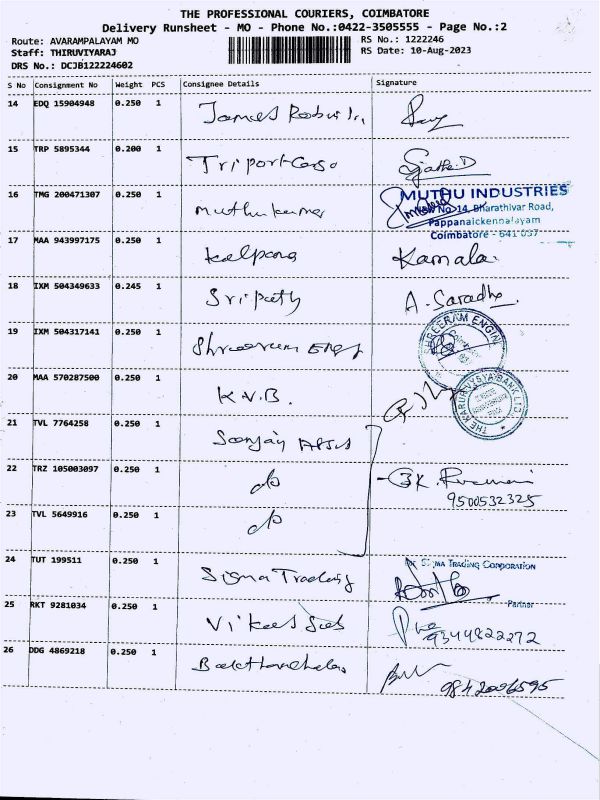 THE PROFESSIONAL COURIERS, COIMBATORE
Delivery Runsheet - MO - Phone No.:0422-3505555 - Page No.:2
Route: AVARAMPALAYAM MO RS No.: 1222246
Staff: THIRUVIYARAJ RS Date: 10-Aug-2023
DRS No.: DCJB122224602
S No Consignment No Weight PCS Consignee Details Signature
14 EDQ 15904948 0.250 1 James
15 TRP 5895344 0.200 1 Triport Cargo
16 TMG 200471307 0.250 1 muthukumar
MUTHU INDUSTRIES
No-14, Bharathivar Road,
Pappanaickenpalayam
Coimbatore - 641 037
17 MAA 943997175 0.250 1 Kalpana Kamala
18 IXM 504349633 0.245 1 Sripathy A. Saradha
19 IXM 504317141 0.250 1 Shreeram Engg
SHREERAM ENGINE
20 MAA 570287500 0.250 1 K.V.B.
THE KARUR VYSYA BANK LTD.
21 TVL 7764258 0.250 1
22 TRZ 105003097 0.250 1 do
9500532325
23 TVL 5649916 0.250 1 do
24 TUT 199511 0.250 1 Sigma Trading
For SIGMA TRADING CORPORATION
Partner
25 RKT 9281034 0.250 1 Vikas
9344822272
26 DDG 4869218 0.250 1
9842006595